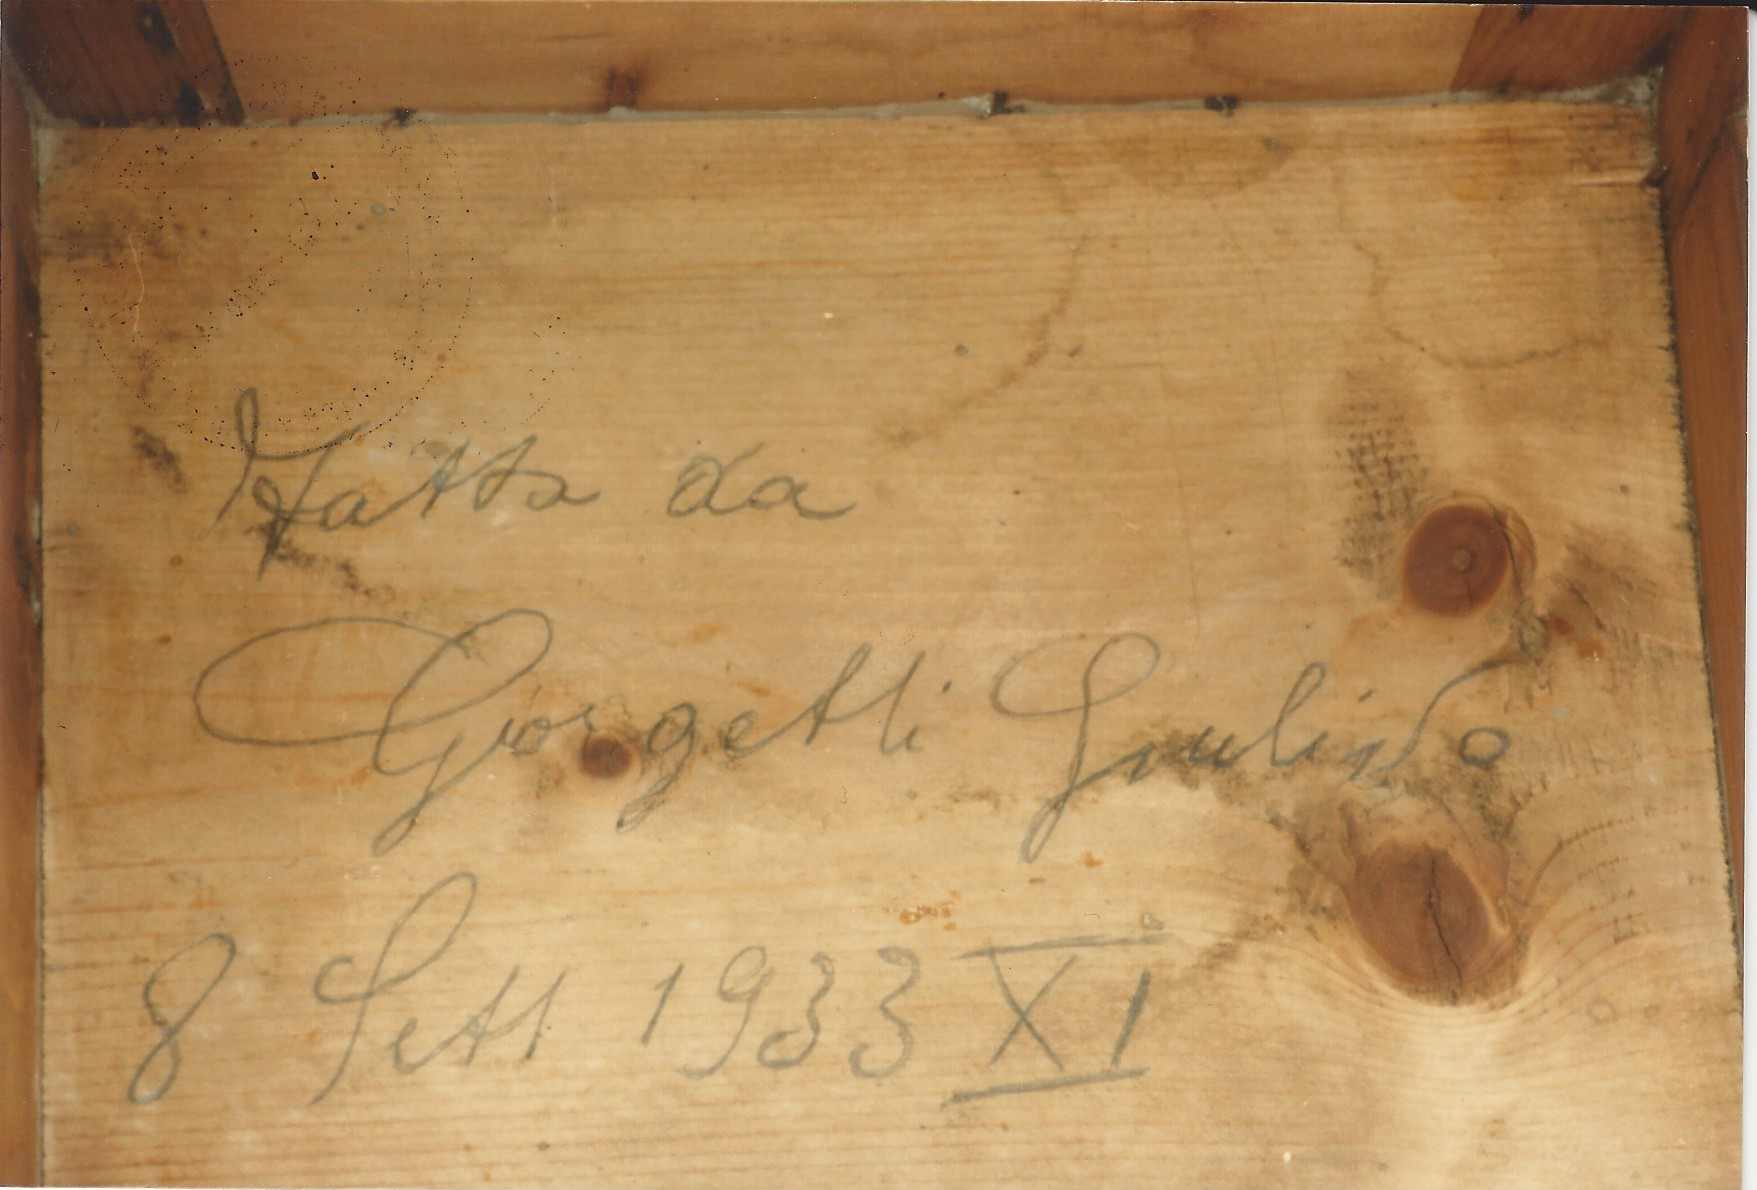 Fatta da
Giorgetti Guido
8 Sett 1933 XI